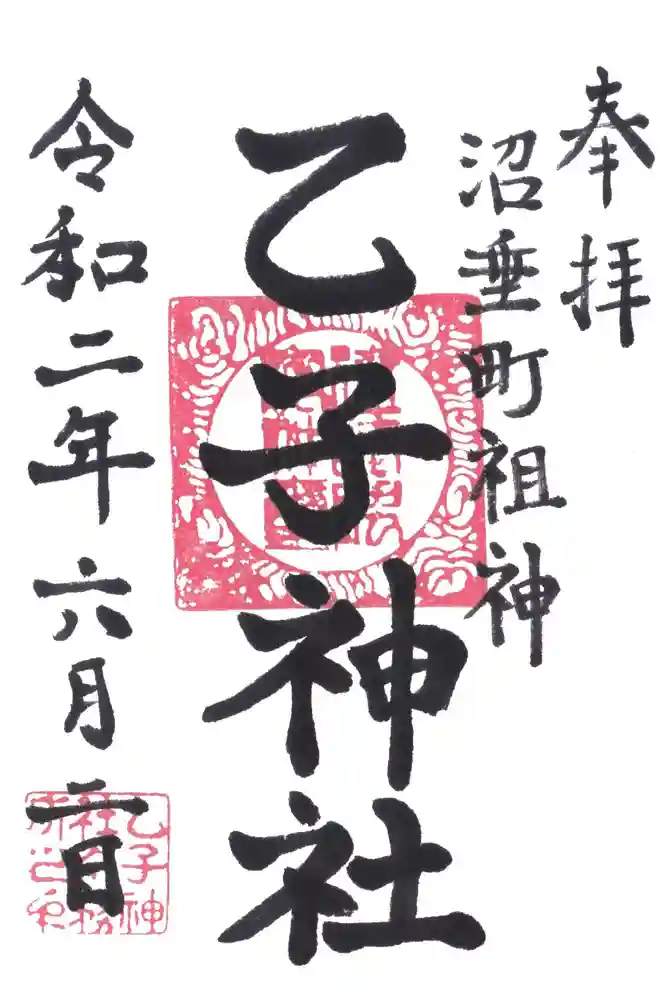 奉拝
沼垂町祖神
乙子神社
令和二年六月二日
乙子神
社社務
所之印